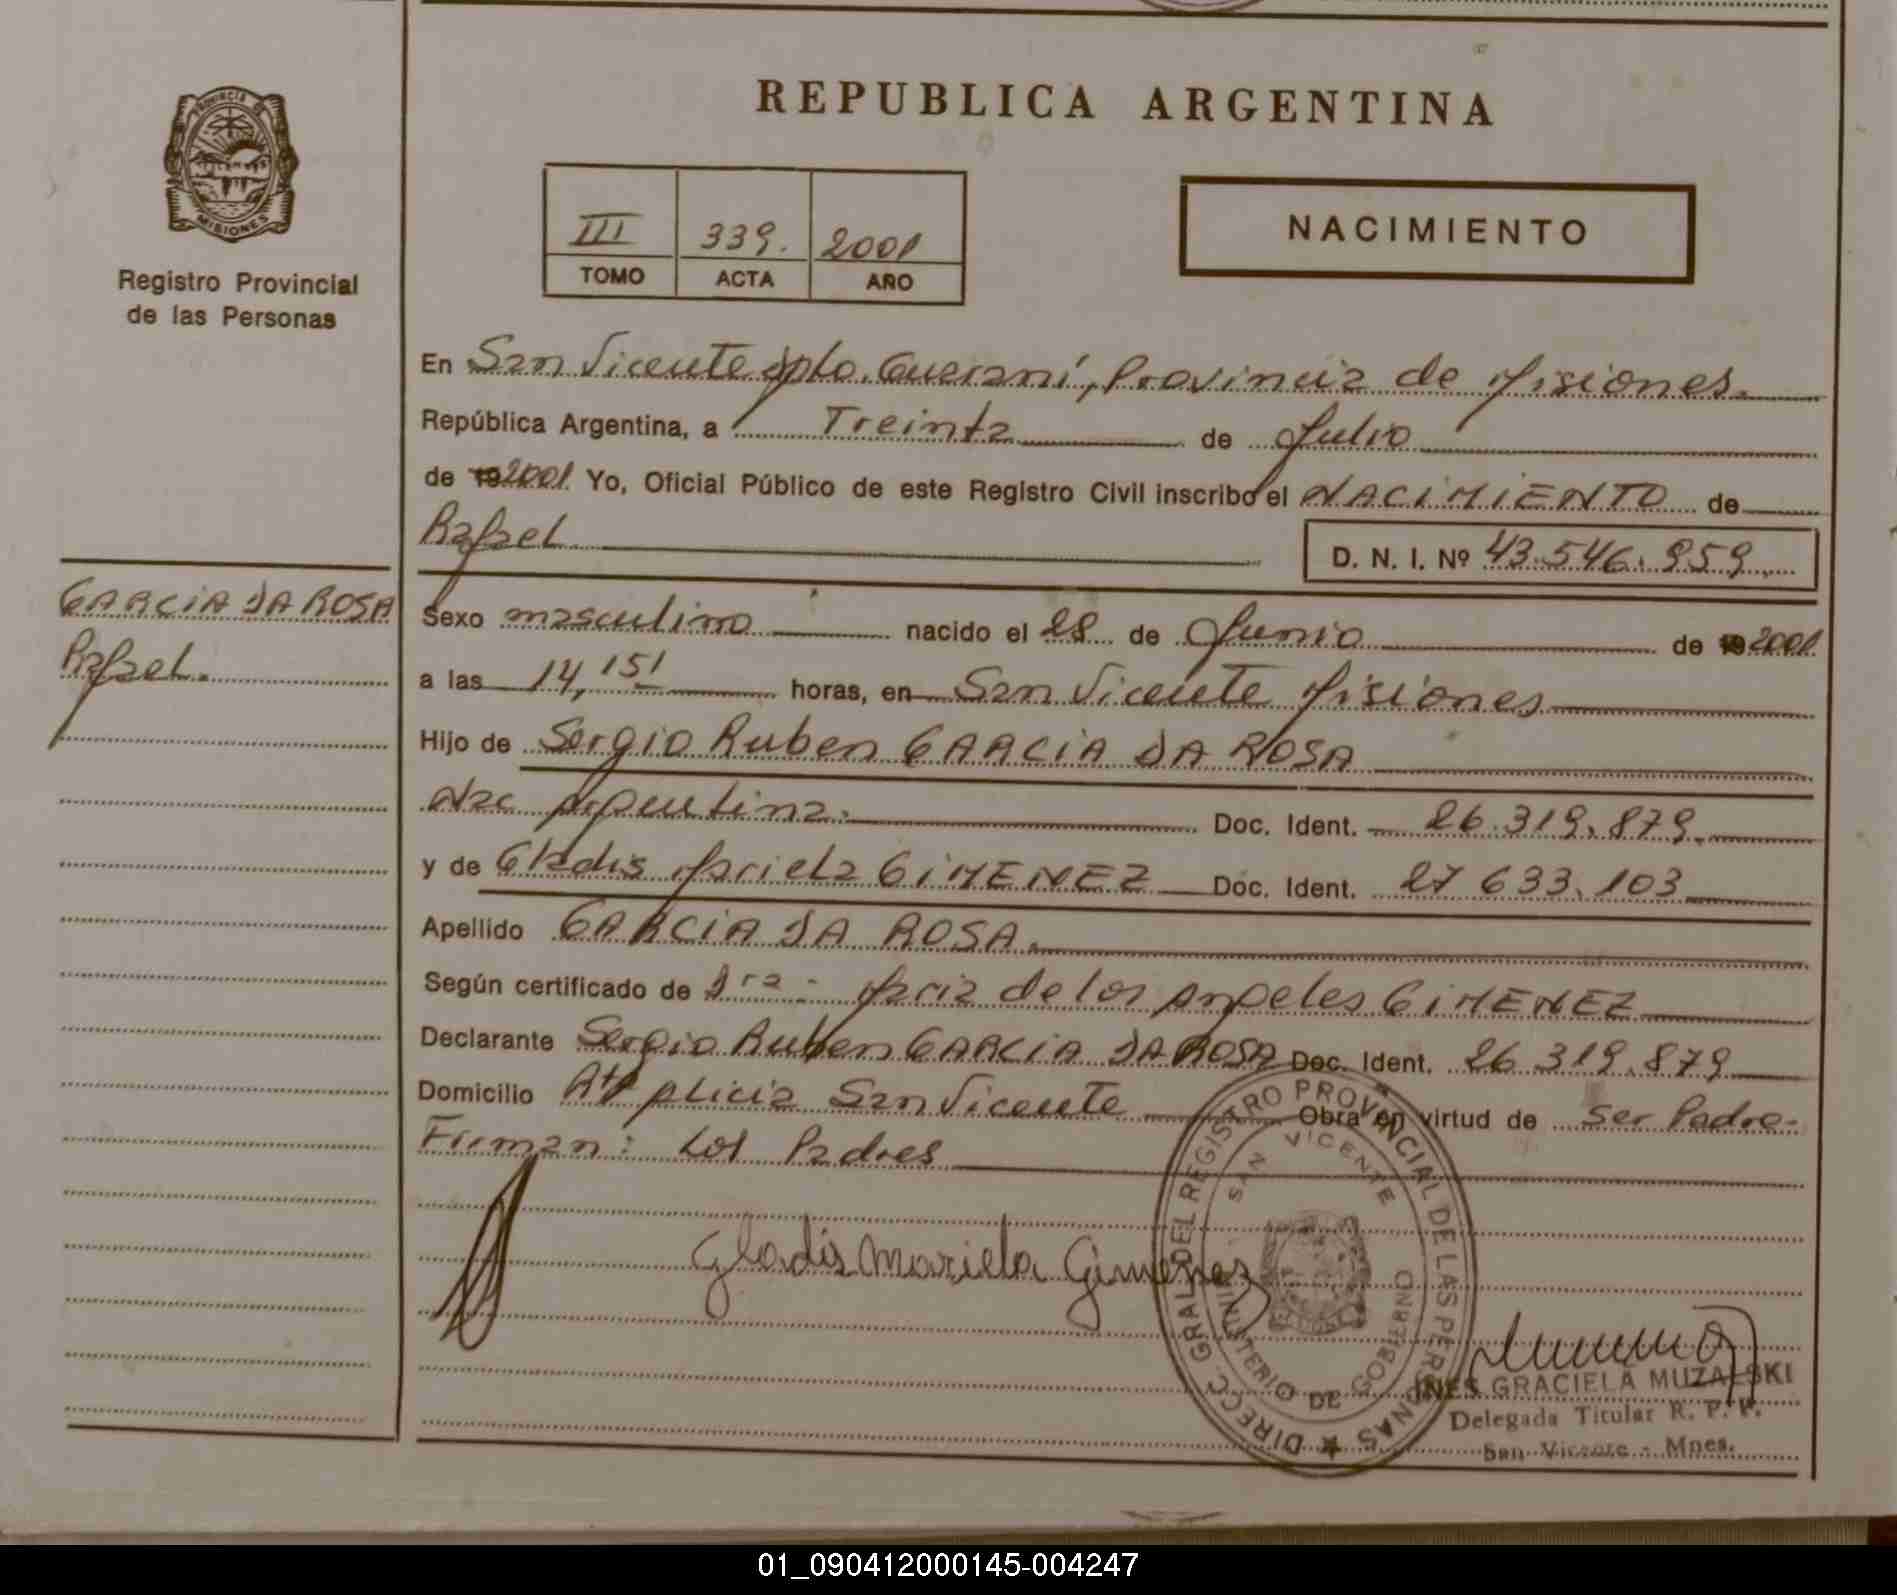 PROVINCIA DE
MISIONES
Registro Provincial
de las Personas
GARCIA DA ROSA
Rafael.
REPUBLICA ARGENTINA
III 339. 2001
TOMO ACTA AÑO
NACIMIENTO
En San Vicente dpto. Guarani, Provincia de Misiones.
República Argentina, a Treinta de Julio
de 192001 Yo, Oficial Público de este Registro Civil inscribo el NACIMIENTO de
Rafael
D. N. I. Nº 43.546.959
Sexo masculino nacido el 28 de Junio de 19 2001
a las 14,15 horas, en San Vicente Misiones
Hijo de Sergio Ruben GARCIA DA ROSA
Nac Argentina. Doc. Ident. 26.319.879.
y de Gladis Mariela GIMENEZ Doc. Ident. 27 633.103
Apellido GARCIA DA ROSA.
Según certificado de Dra - Maria de los Angeles GIMENEZ
Declarante Sergio Ruben GARCIA DA ROSA Doc. Ident. 26 319.879
Domicilio Alicia San Vicente Obra en virtud de Ser Padre-
Firman: Los Padres
Gladis Mariela Gimenez
DIRECC. GRAL DEL REGISTRO PROVINCIAL DE LAS PERSONAS
SAN VICENTE
MINISTERIO DE GOBIERNO
INES GRACIELA MUZALSKI
Delegada Titular R. P. P.
San Vicente - Mnes.
01_090412000145-004247